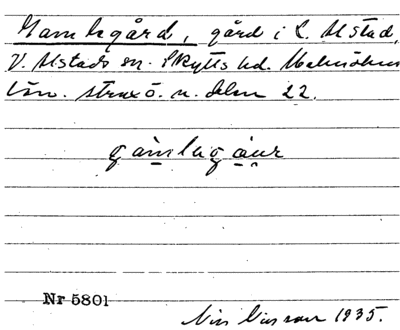 Gamlegård, gård i L. Alstad,
V. Alstads sn. Skytts hd. Malmöhus
län. strax ö. n. delen 22.
gamlegaur
Nr 5801
Nils Nilsson 1935.